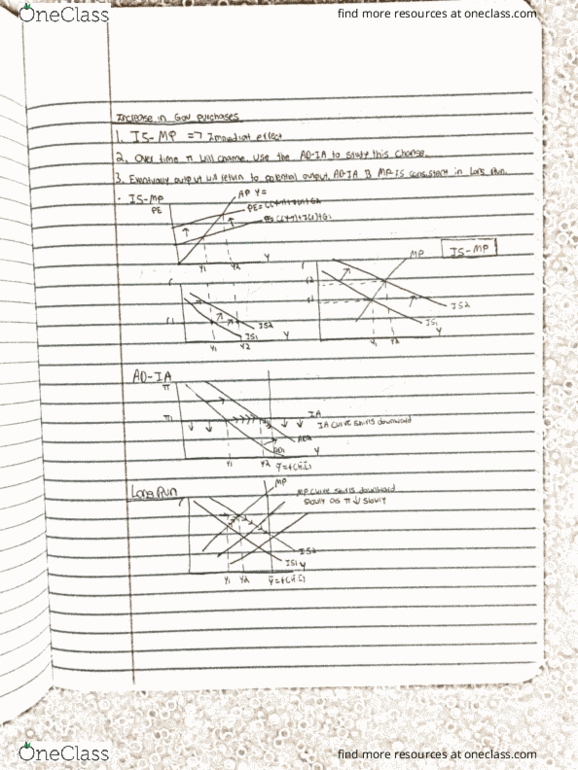 OneClass
find more resources at oneclass.com
Increase in Gov purchases
1. IS-MP => Immediat effect
2. Over time π will change. Use the AD-IA to study this change.
3. Eventually output will return to potential output. AD-IA & MP-IS consistent in Long Run.
· IS-MP
PE
AP Y=
Y1 Y2 Y
r
r1
IS2
IS1
Y1 Y2 Y
MP
IS-MP
r
r2
r1
IS2
IS1
Y1 Y2 Y
AD-IA
π
π1
IA
IA curve shifts downward
AD2
AD1
Y1 Y2 Y
Long Run
r
MP
MP curve shifts downward
slowly as π ↓ slowly
IS2
IS1 Y
Y1 Y2
OneClass
find more resources at oneclass.com